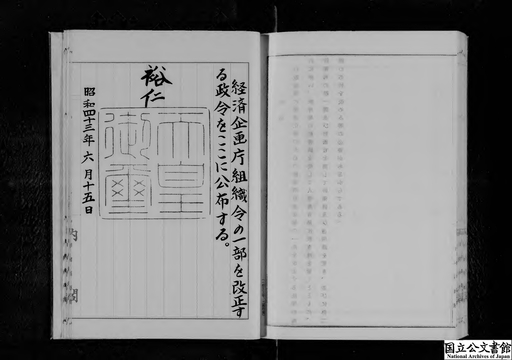 経済企画庁組織令の一部を改正す
る政令をここに公布する。
裕仁
天皇
御璽
昭和四十三年六月十五日
内閣
国立公文書館
National Archives of Japan